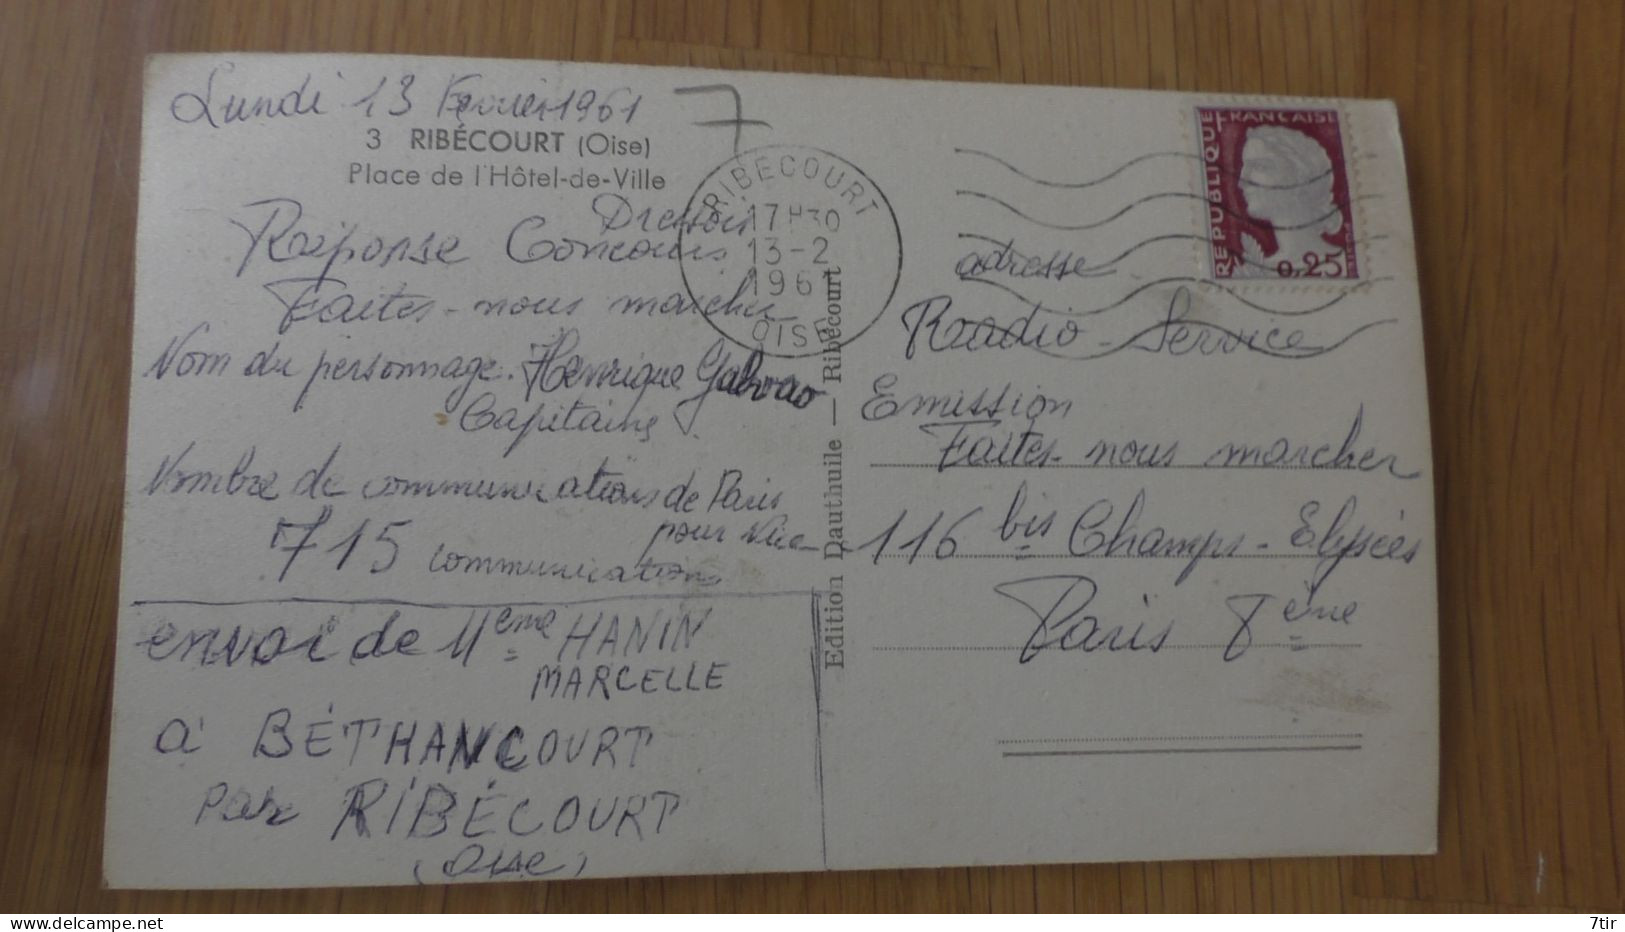 Lundi 13 Fevrier 1961
3 RIBÉCOURT (Oise)
Place de l'Hôtel-de-Ville
Réponse Concours
Faites-nous marcher
Nom du personnage. Henrique Galvao
Capitaine
Nombre de communications de Paris
pour Nice
715 communications
envoi de Meme HANIN
MARCELLE
à BÉTHANCOURT
Par RIBÉCOURT
(Oise)
7
RIBECOURT
17H30
13-2
1961
OISE
Edition Dauthuile — Ribécourt
REPUBLIQUE FRANCAISE
0,25
adresse
Radio-Service
Emission
Faites-nous marcher
116 bis Champs-Elysées
Paris 8ème
delcampe.net
7tir